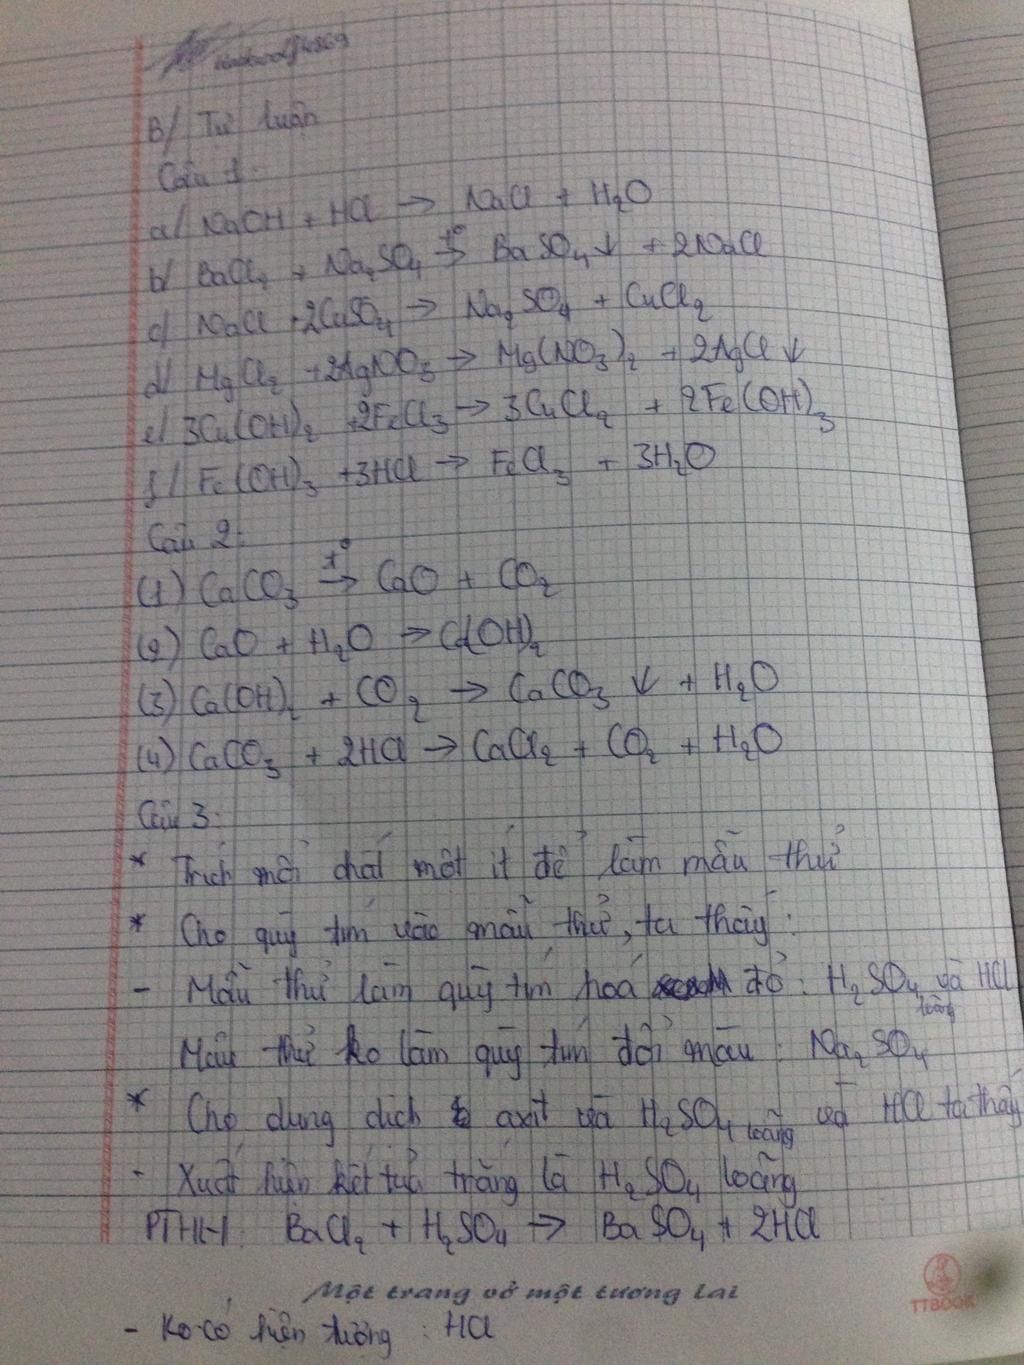 B/ Tự luận
Câu 1:
a/ NaOH + HCl → NaCl + H₂O
b/ BaCl₂ + Na₂SO₄ →t° BaSO₄↓ + 2NaCl
c/ NaCl + 2CuSO₄ → Na₂SO₄ + CuCl₂
d/ MgCl₂ + 2AgNO₃ → Mg(NO₃)₂ + 2AgCl↓
e/ 3Cu(OH)₂ + 2FeCl₃ → 3CuCl₂ + 2Fe(OH)₃
f/ Fe(OH)₃ + 3HCl → FeCl₃ + 3H₂O
Câu 2:
(1) CaCO₃ →t° CaO + CO₂
(2) CaO + H₂O → Ca(OH)₂
(3) Ca(OH)₂ + CO₂ → CaCO₃↓ + H₂O
(4) CaCO₃ + 2HCl → CaCl₂ + CO₂ + H₂O
Câu 3:
* Trích mỗi chất một ít để làm mẫu thử
* Cho quỳ tím vào mẫu thử, ta thấy:
- Mẫu thử làm quỳ tím hoá đỏ: H₂SO₄ loãng và HCl
Mẫu thử ko làm quỳ tím đổi màu: Na₂SO₄
* Cho dung dịch axit và H₂SO₄ loãng và HCl ta thấy
- Xuất hiện kết tủa trắng là H₂SO₄ loãng
PTHH: BaCl₂ + H₂SO₄ → BaSO₄ + 2HCl
Một trang vở một tương lai
TTBOOK
- Ko có hiện tượng: HCl